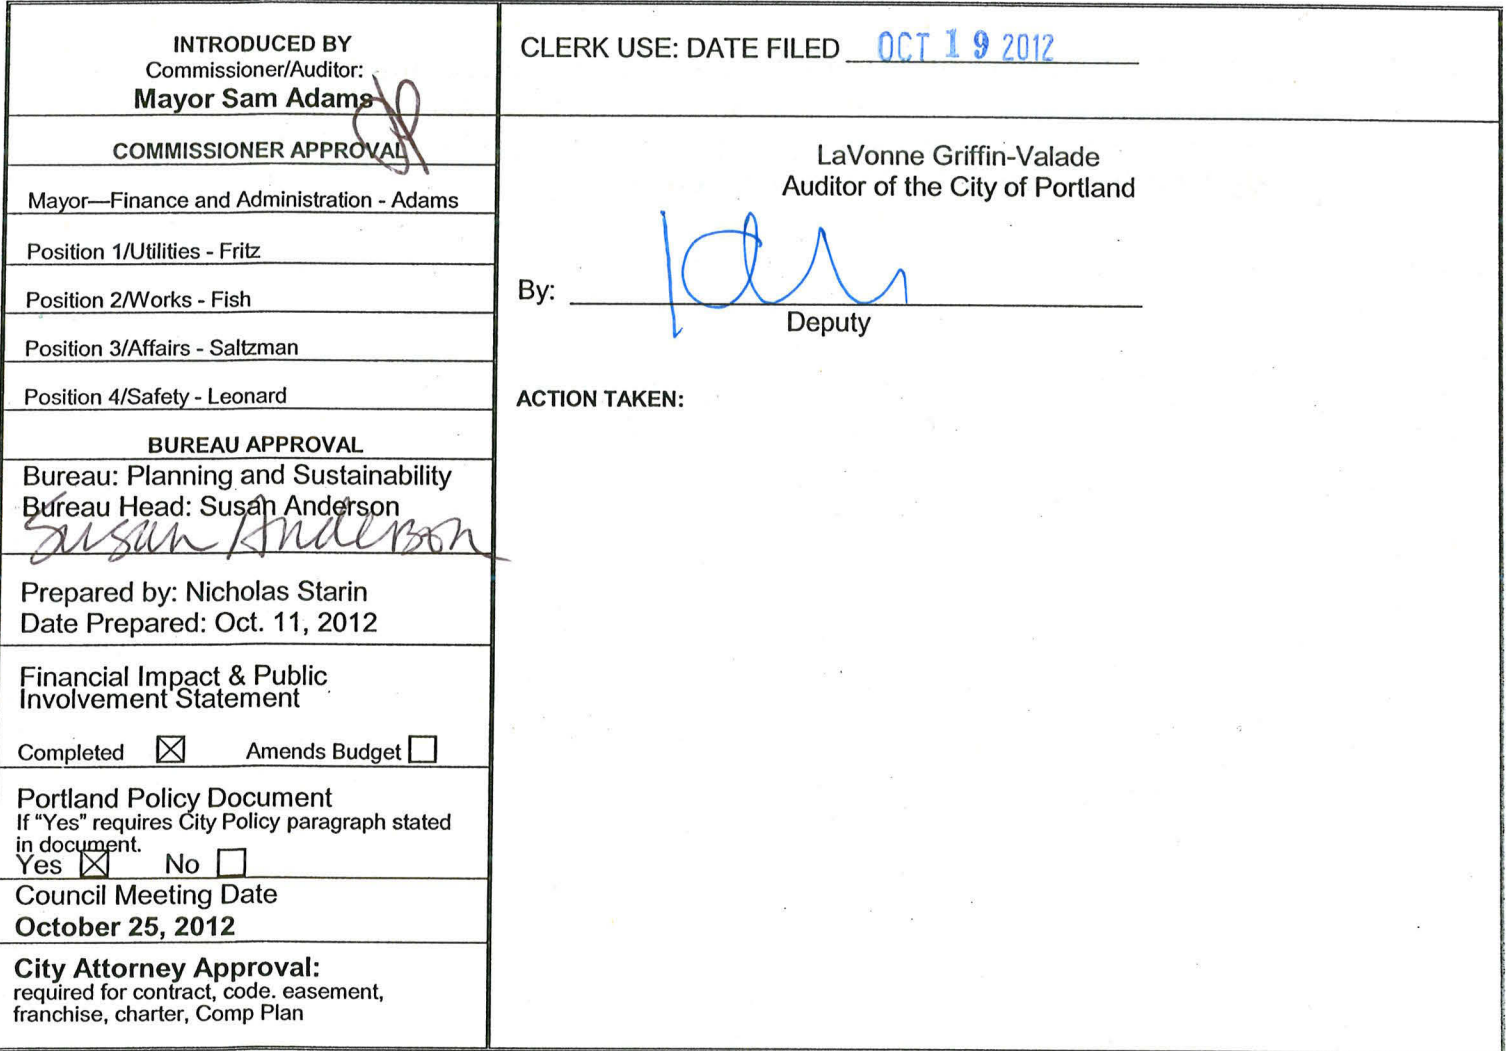 INTRODUCED BY
Commissioner/Auditor:
Mayor Sam Adams
COMMISSIONER APPROVAL
Mayor—Finance and Administration - Adams
Position 1/Utilities - Fritz
Position 2/Works - Fish
Position 3/Affairs - Saltzman
Position 4/Safety - Leonard
BUREAU APPROVAL
Bureau: Planning and Sustainability
Bureau Head: Susan Anderson
Susan Anderson
Prepared by: Nicholas Starin
Date Prepared: Oct. 11, 2012
Financial Impact & Public
Involvement Statement
Completed ☒ Amends Budget ☐
Portland Policy Document
If “Yes” requires City Policy paragraph stated
in document.
Yes ☒ No ☐
Council Meeting Date
October 25, 2012
City Attorney Approval:
required for contract, code. easement,
franchise, charter, Comp Plan
CLERK USE: DATE FILED OCT 19 2012
LaVonne Griffin-Valade
Auditor of the City of Portland
By:
Deputy
ACTION TAKEN: